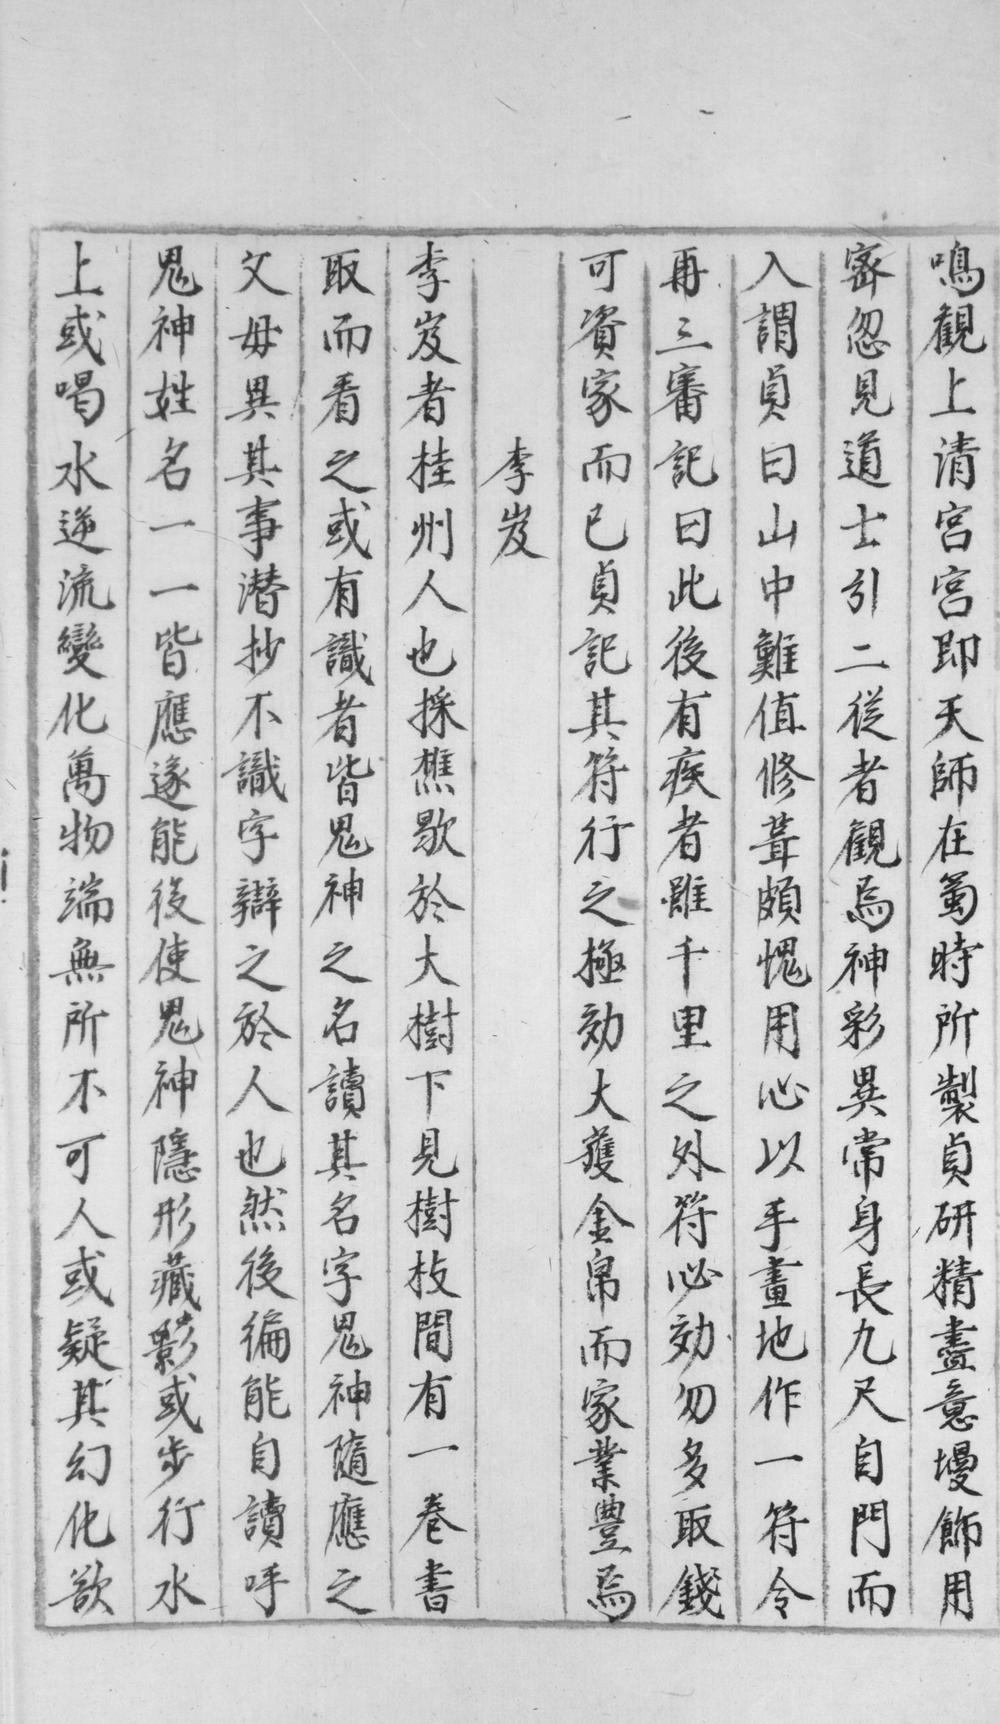 鳴觀上清宮宮即天師在蜀時所製貞研精盡意墁飾用
密忽見道士引二從者觀焉神彩異常身長九尺自門而
入謂貞曰山中難值修葺頗愧用心以手畫地作一符令
再三審記曰此後有疾者雖千里之外符必効勿多取錢
可資家而已貞記其符行之極効大獲金帛而家業豐焉
李岌
李岌者桂州人也採樵歇於大樹下見樹枝間有一卷書
取而看之或有識者皆鬼神之名讀其名字鬼神隨應之
父母異其事潜抄不識字辯之於人也然後徧能自讀呼
鬼神姓名一一皆應遂能役使鬼神隱形藏影或步行水
上或喝水逆流變化萬物端無所不可人或疑其幻化欲